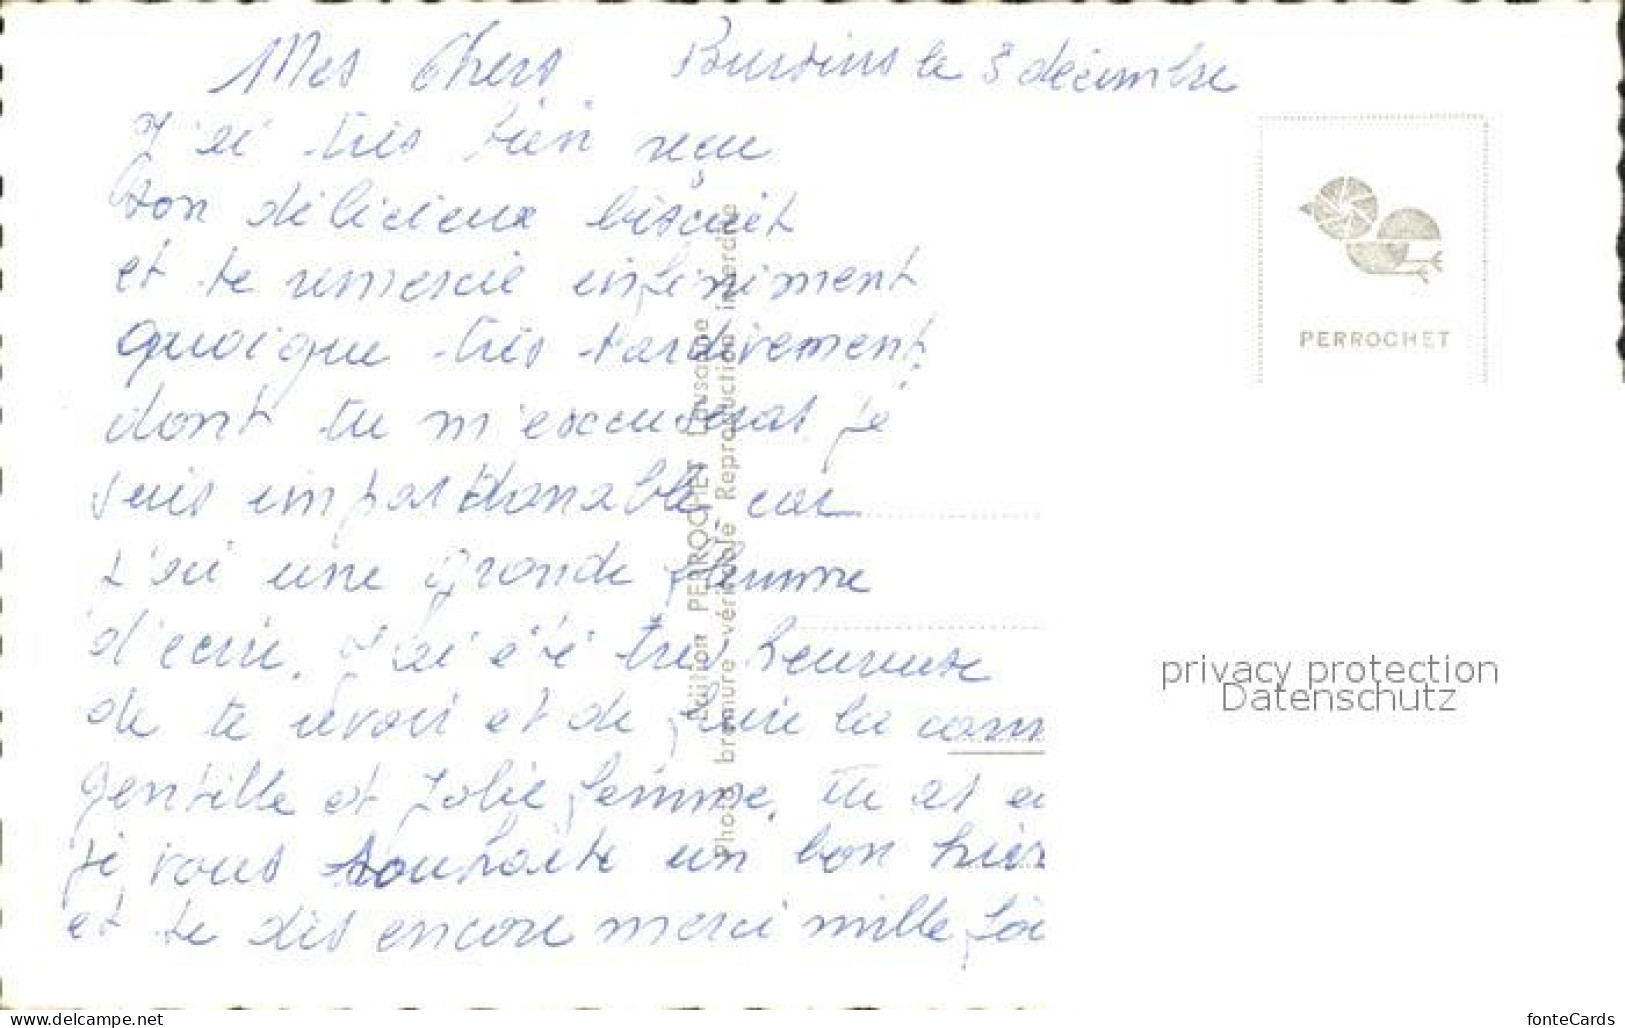 Mes Chers Bursins le 3 décembre
J'ai très bien reçu
ton délicieux biscuit
et te remercie infiniment
quoique très tardivement
dont tu m'excuseras je
suis impardonable, car
J'ai une grande flemme
d'ecrire. J'ai été très heureuse
de te revoir et de faire la conn
gentille et Jolie femme. Tu as
je vous souhaite un bon hiver
et te dis encore merci mille foi
Edition PERROCHET Lausanne
Photos bromure véritable Reproduction interdite
PERROCHET
privacy protection
Datenschutz
www.delcampe.net
fonteCards